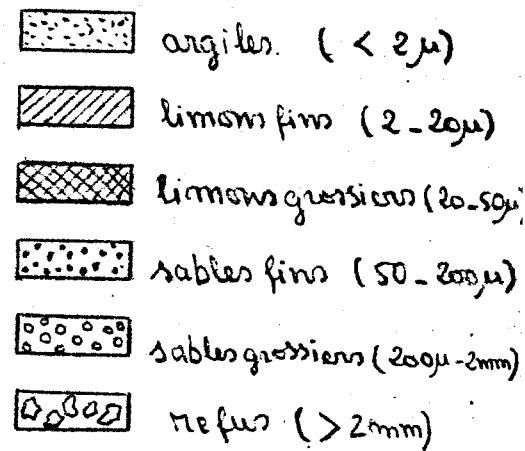 argiles. (< 2µ)
limons fins (2-20µ)
limons grossiers (20-50µ)
sables fins (50-200µ)
sables grossiers (200µ-2mm)
refus (>2mm)